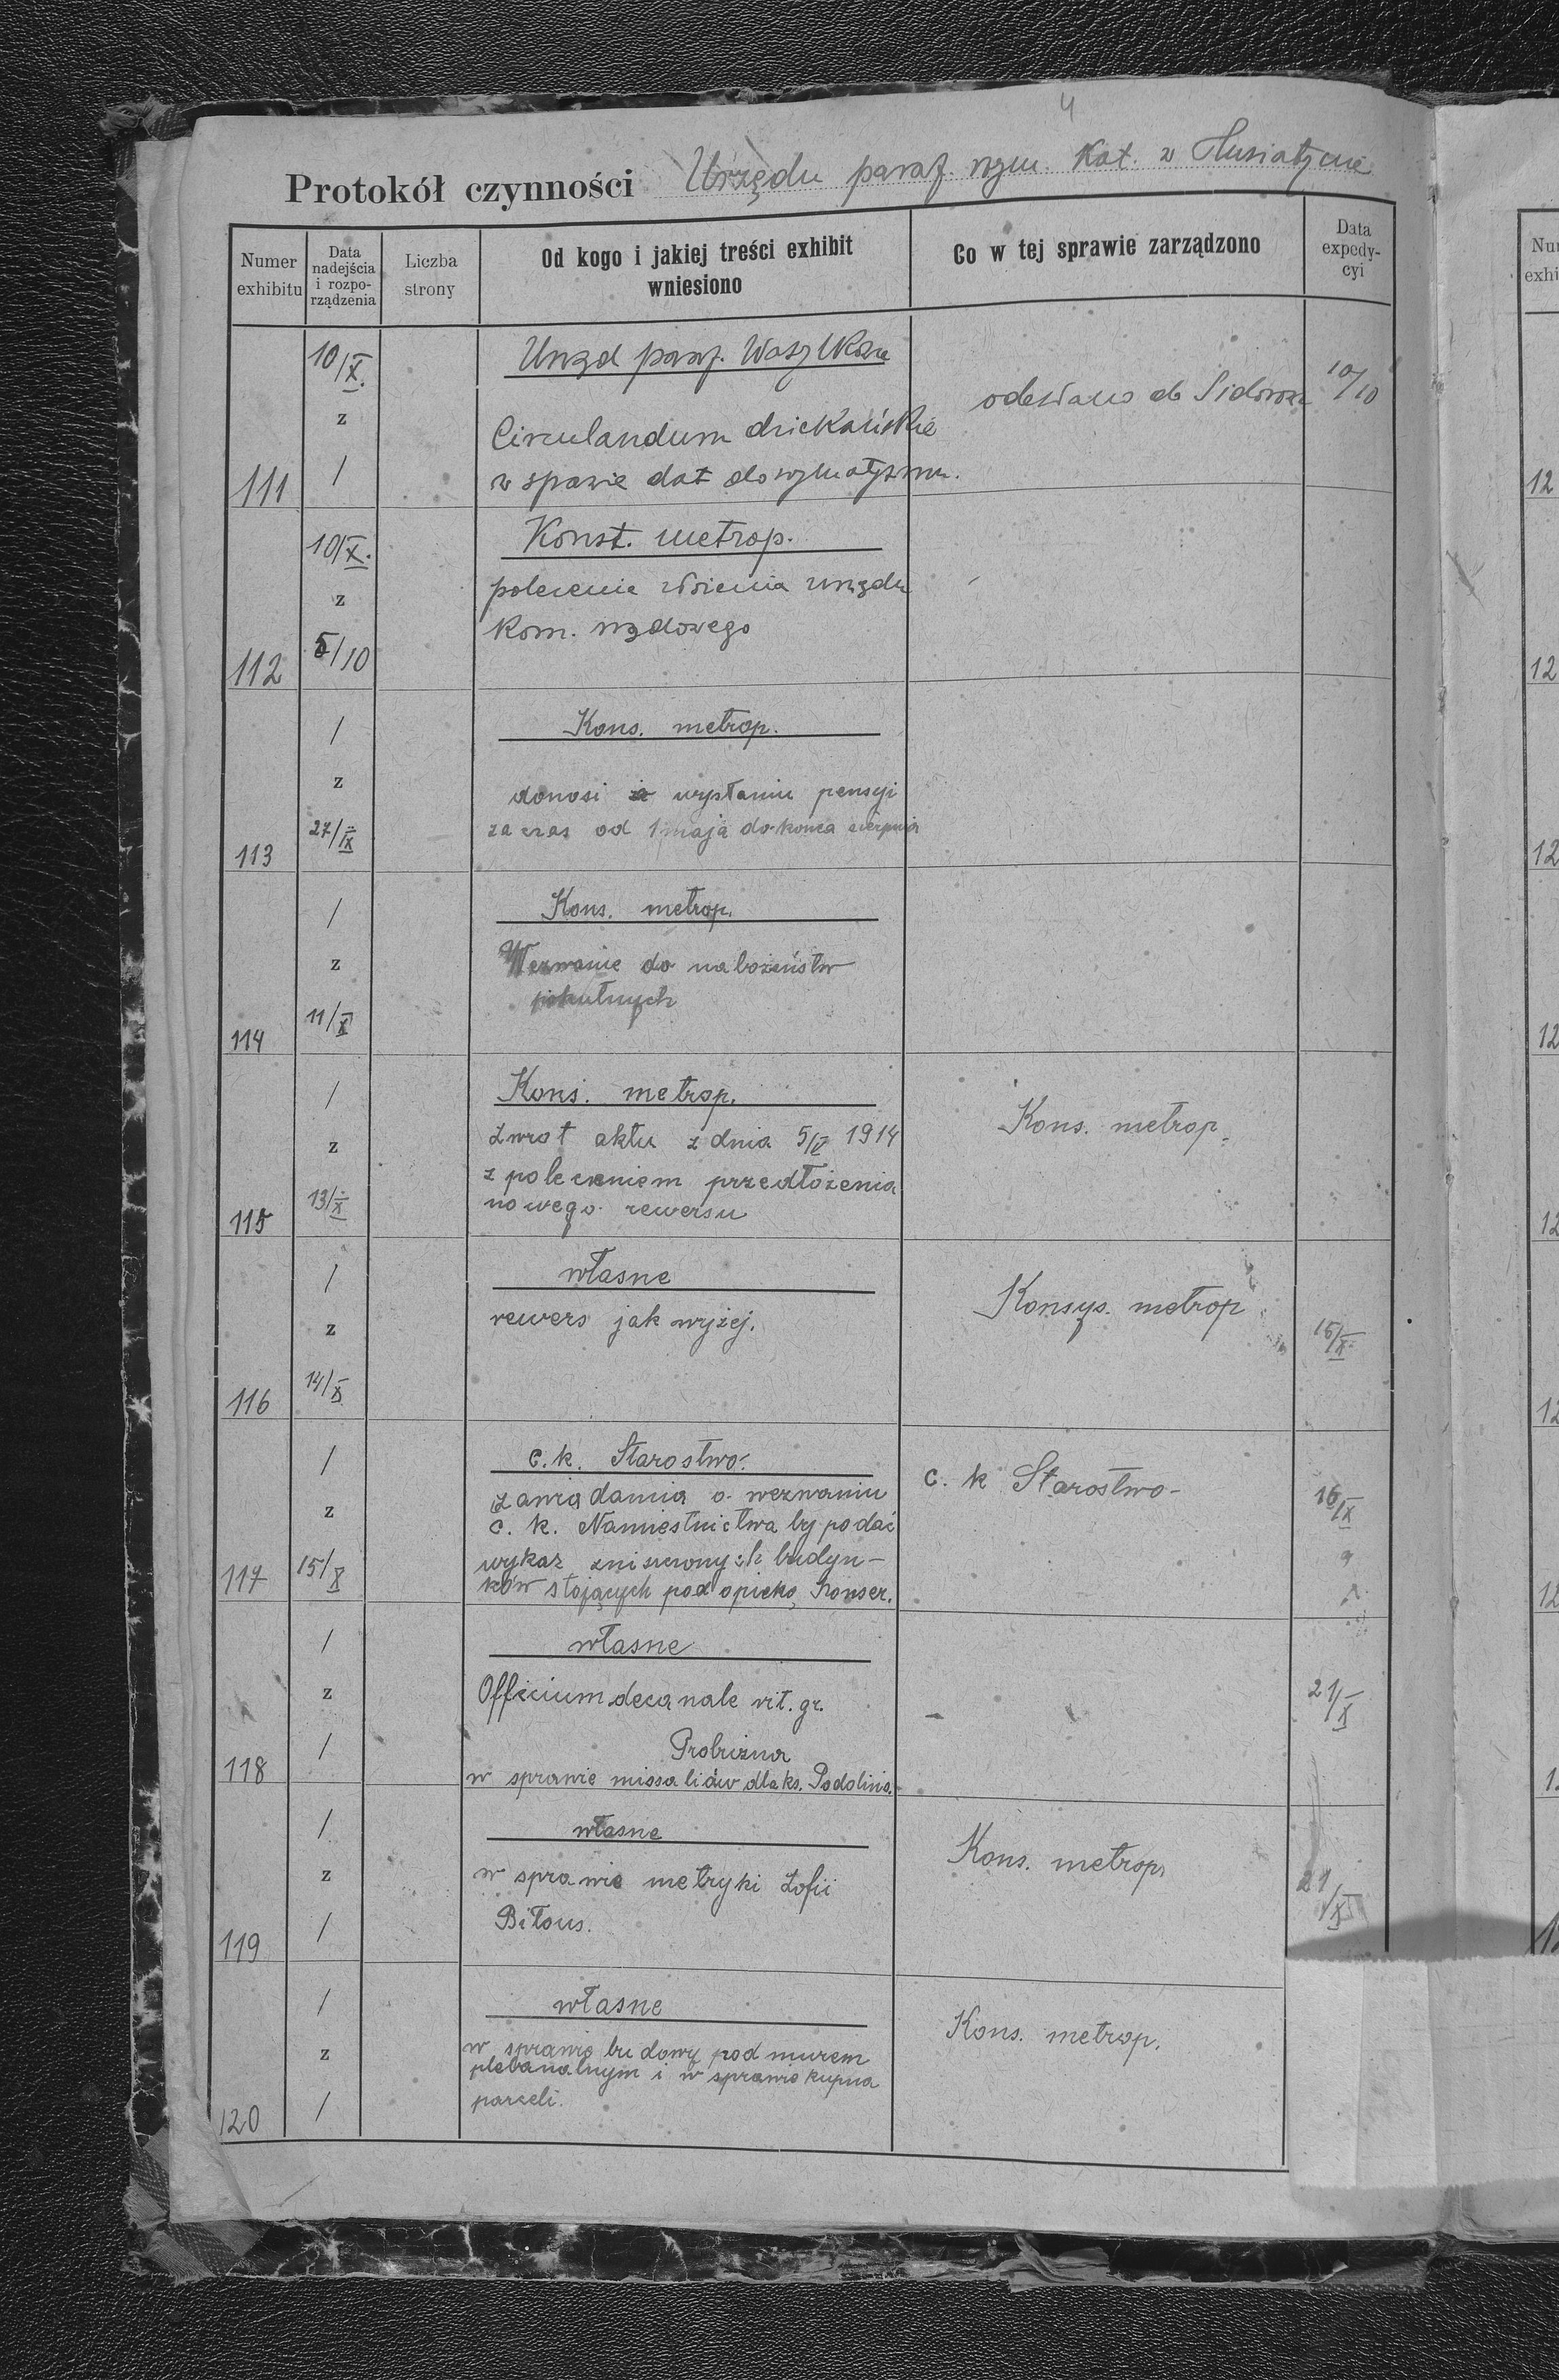 4
Protokół czynności Urzędu paraf. rzym. Kat. w Husiatynie
Numer exhibitu
Data nadejścia i rozporządzenia
Liczba strony
Od kogo i jakiej treści exhibit wniesiono
Co w tej sprawie zarządzono
Data expedycyi
111
10/X.
z
/
Urząd paraf.
Circulandum dziekańskie
w spawie dat do szematyzmu.
odesłano do Sidorowa
10/10
112
10/X.
z
5/10
Konst. metrop.
polecenie urzędu
Kom. rządowego
113
/
z
27/IX
Kons. metrop.
donosi o wysłaniu pensyi
za czas od 1 maja do końca sierpnia
114
/
z
11/X
Kons. metrop.
Wezwanie do nabożeństw
pokutnych
115
/
z
13/X
Kons. metrop.
Zwrot aktu z dnia 5/V 1914
z poleceniem przedłożenia
nowego rewersu
Kons. metrop.
116
/
z
14/X
własne
rewers jak wyżej.
Konsys. metrop
15/X.
117
/
z
15/X
c. k. Starostwo.
zawiadamia o wezwaniu
c. k. Namiestnictwa by podać
wykaz zniszczonych budyn-
ków stojących pod opieką Konser.
c. k Starostwo-
16/X
118
/
z
/
własne
Officium decanale rit. gr.
Probużna
w sprawie missaliów dla ks. Podolińs.
21/X
119
/
z
/
własne
w sprawie metryki Zofii
Biłous.
Kons. metrop.
21/X
120
/
z
/
własne
w sprawie budowy pod murem
plebanalnym i w sprawie kupna
parceli.
Kons. metrop.